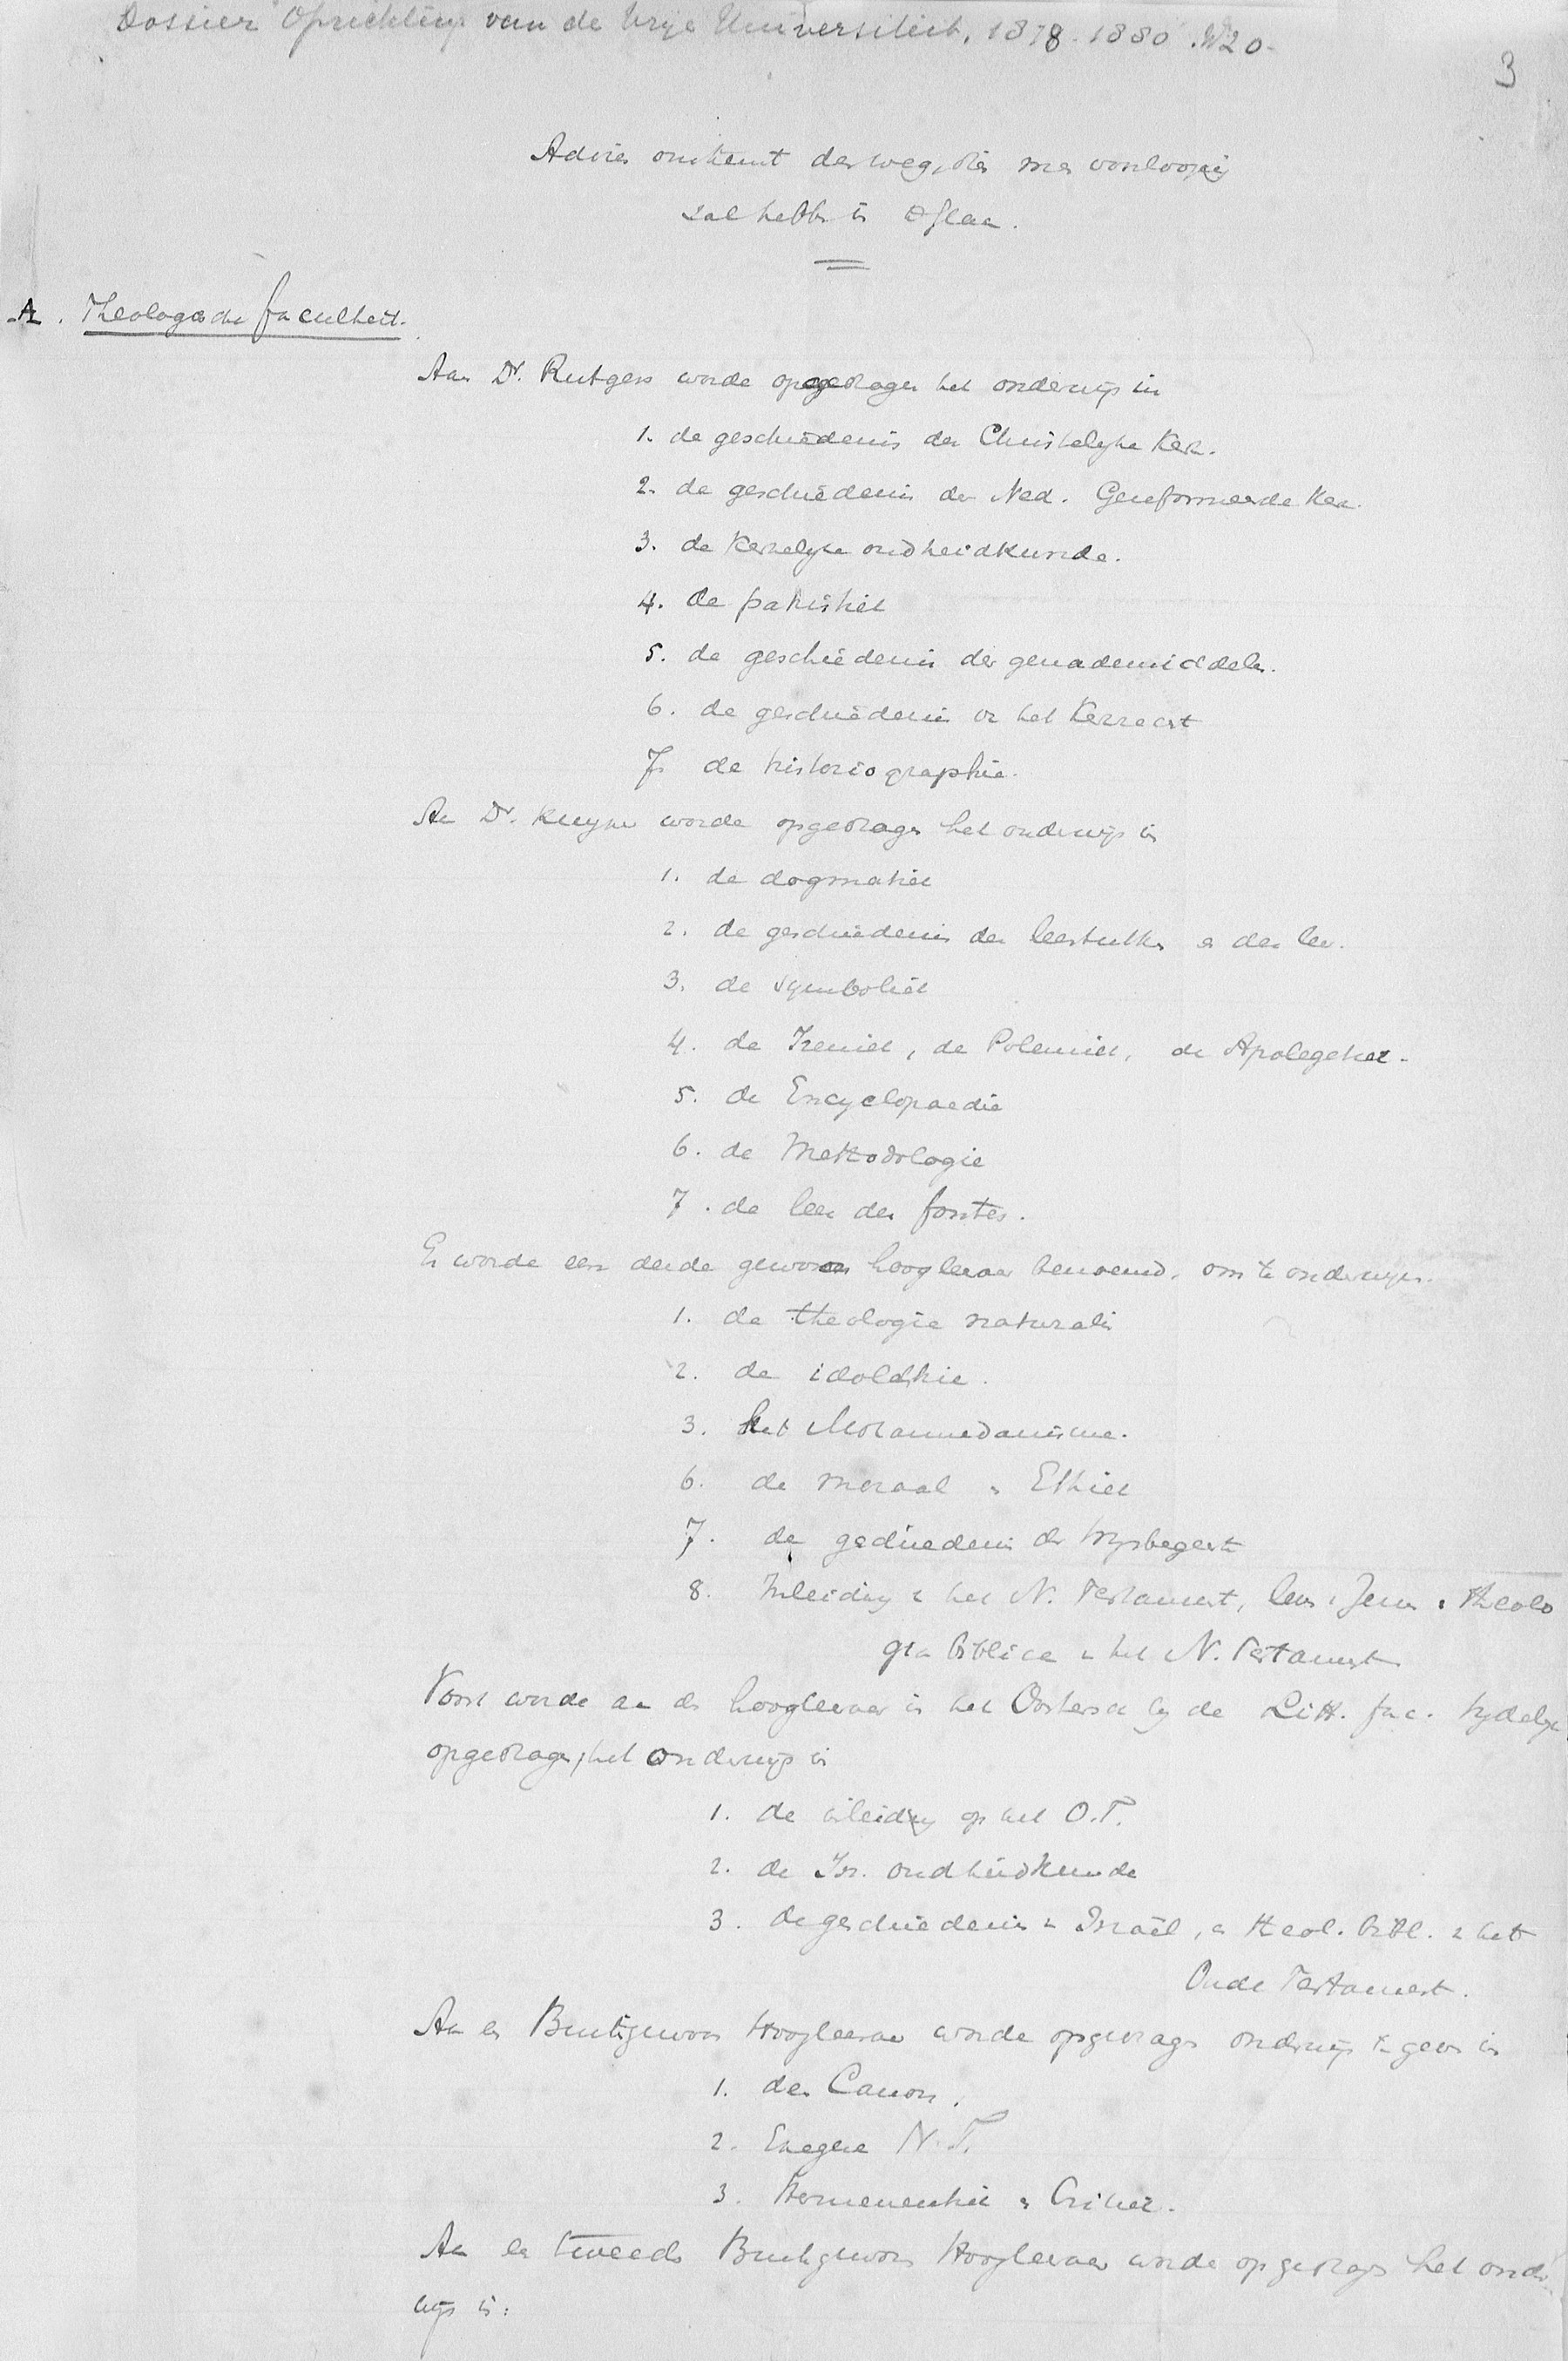 Dossier Oprichting van de Vrije Universiteit, 1878-1880. N 20-
3
Advies omtrent den weg, dien men voorloopig
zal hebben in te slaan.
A. Theologische faculteit.
Aan Dr. Rutgers worde opgedragen het onderwijs in
1. de geschiedenis der Christelijke Kerk.
2. de geschiedenis der Ned. Gereformeerde Kerk.
3. de Kerkelijke oudheidkunde.
4. de patristiek
5. de geschiedenis der genademiddelen.
6. de geschiedenis en het Kerkrecht
7. de historiographie.
Aan Dr. Kuyper worde opgedragen het onderwijs in
1. de dogmatiek
2. de geschiedenis der leerstukken en der leer.
3. de symboliek
4. de Ireniek, de Polemiek, de Apologetiek.
5. de Encyclopaedie
6. de Methodologie
7. de leer der fontes.
Er worde een derde gewoon hoogleeraar benoemd, om te onderwijzen.
1. de theologie naturalis
2. de idolatrie.
3. het Mohammedanisme.
6. de moraal en Ethiek
7. de geschiedenis der wijsbegeerte
8. Inleiding in het N. Testament, leven v. Jezus en theolo
gia biblica in het N. Testament
Voorts worde aan den hoogleeraar in het Oostersch bij de Litt. fac. tijdelijk
opgedragen, het onderwijs in
1. de inleiding op het O.T.
2. de Isr. oudheidkunde
3. de geschiedenis v. Israël, en theol. bibl. v. het
Oude Testament.
Aan een Buitengewoon Hoogleeraar worde opgedragen onderwijs te geven in
1. den Canon.
2. Exegese N.T.
3. Hermeneutiek en Critiek.
Aan een tweede Buitengewoon Hoogleeraar worde opgedragen het onder
wijs in: